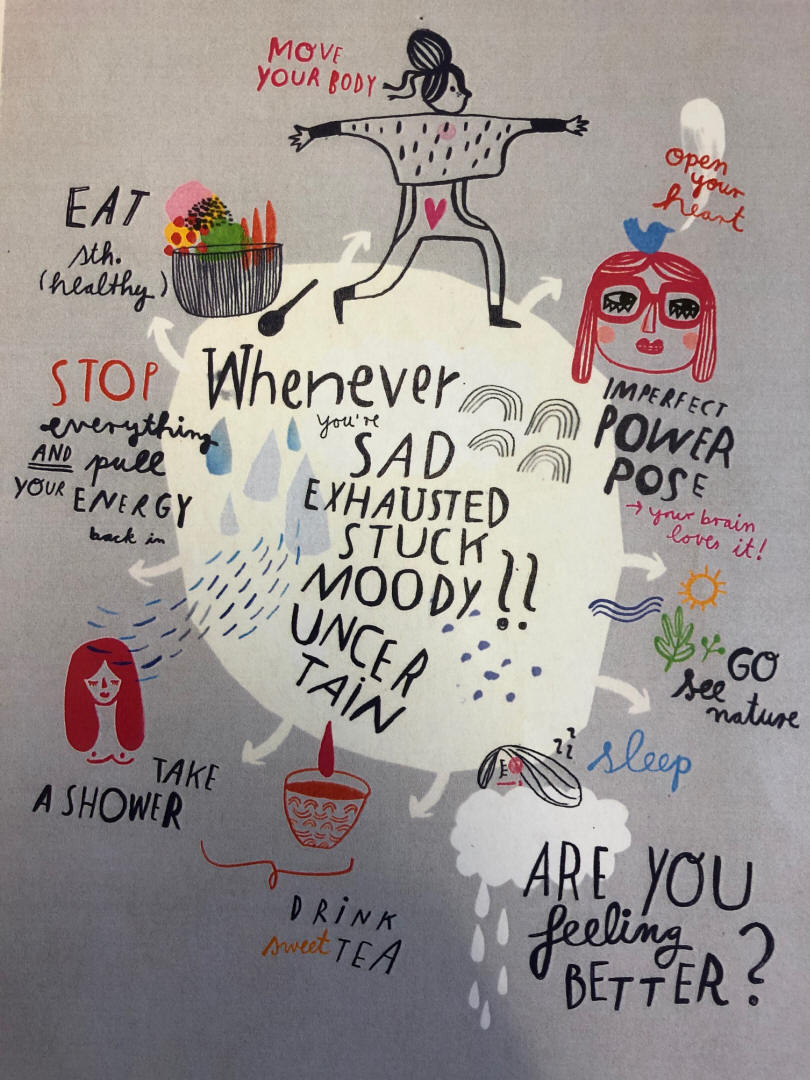 MOVE
YOUR BODY
open
your
heart
EAT
sth.
(healthy)
STOP
everything
AND pull
YOUR ENERGY
back in
Whenever
you're
SAD
EXHAUSTED
STUCK
MOODY!!
UNCER
TAIN
IMPERFECT
POWER
POSE
→ your brain
loves it!
GO
see
nature
zzz
sleep
TAKE
A SHOWER
DRINK
sweet TEA
ARE YOU
feeling
BETTER?